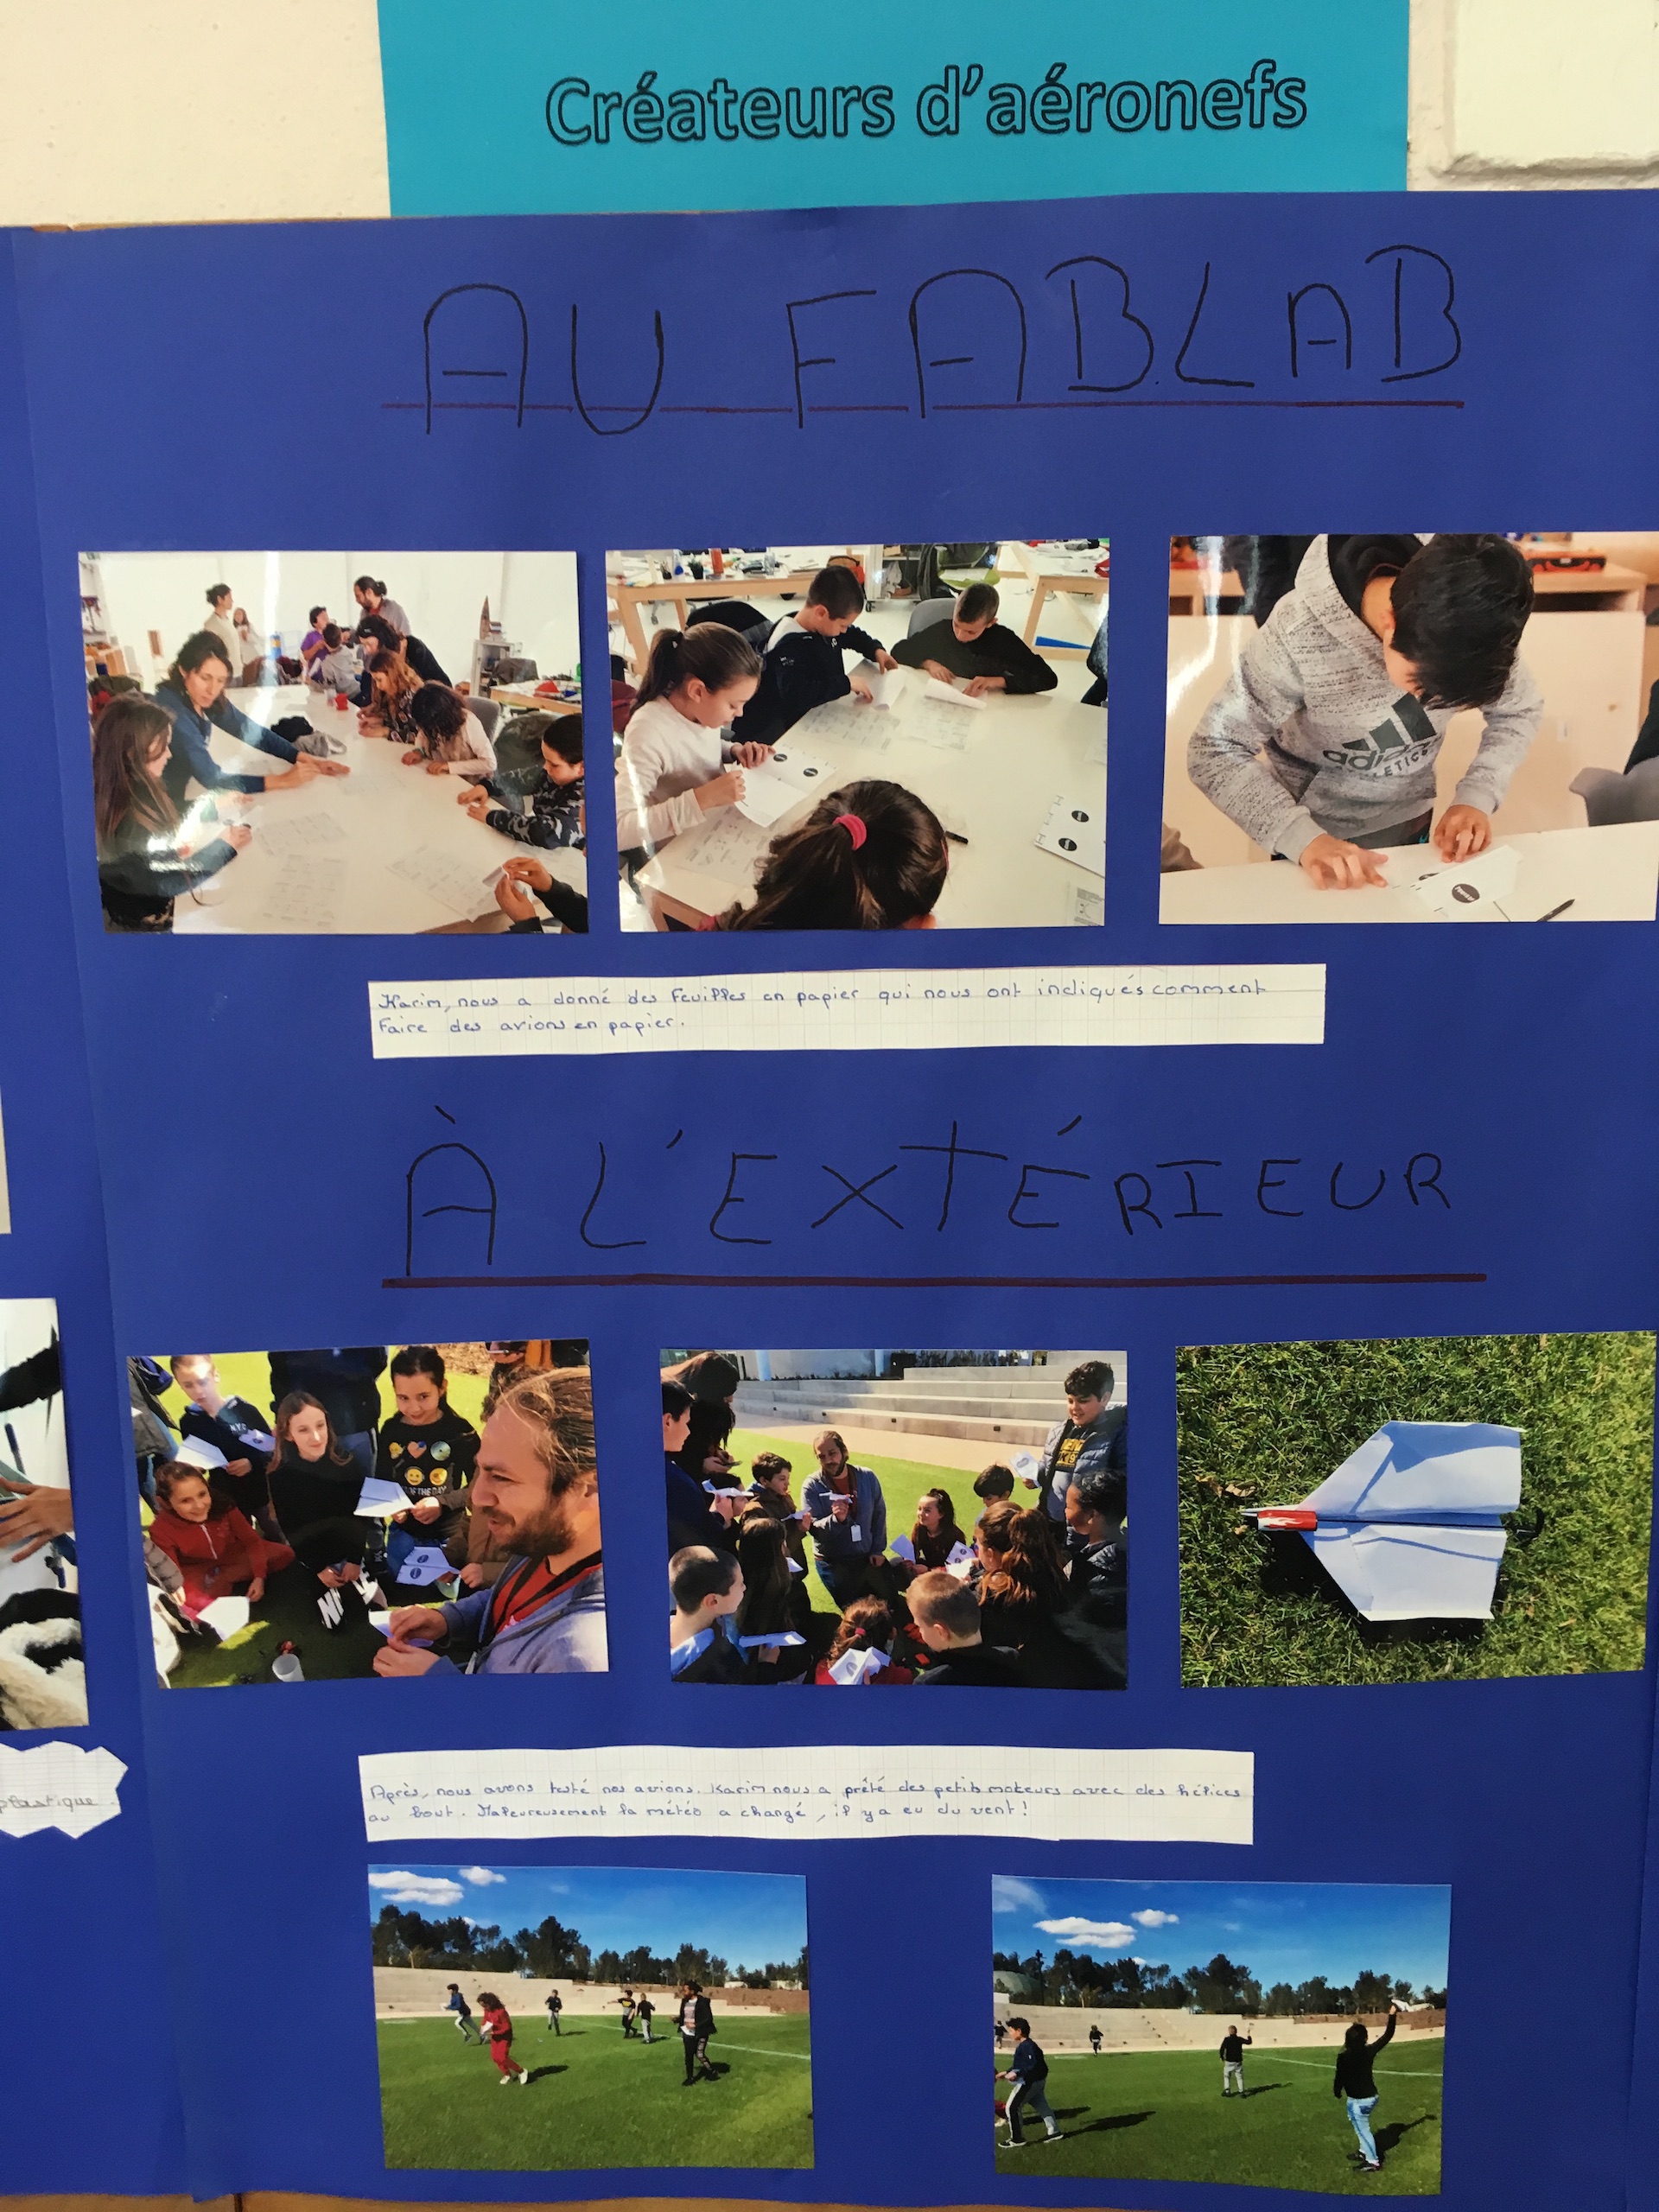 Créateurs d'aéronefs
AU FABLAB
adidas
Karim, nous a donné des feuilles en papier qui nous ont indiqués comment
faire des avions en papier.
À L'EXTÉRIEUR
Après, nous avons testé nos avions. Karim nous a prêté des petits moteurs avec des hélices
au bout. Maleureusement la météo a changé, il y a eu du vent!
plastique.